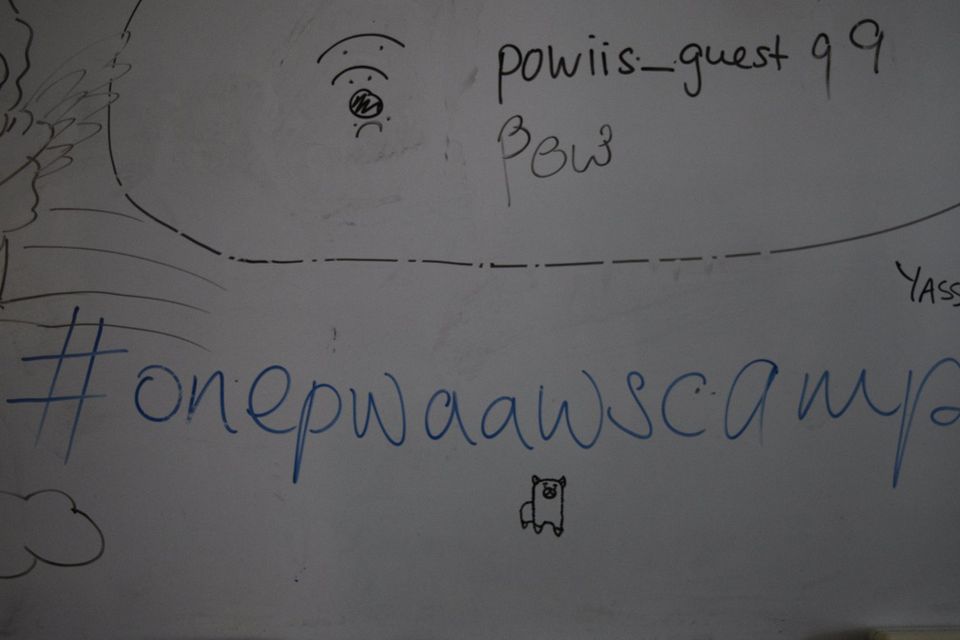 powiis_guest 99
POW
YASS
#onepwaawscamp